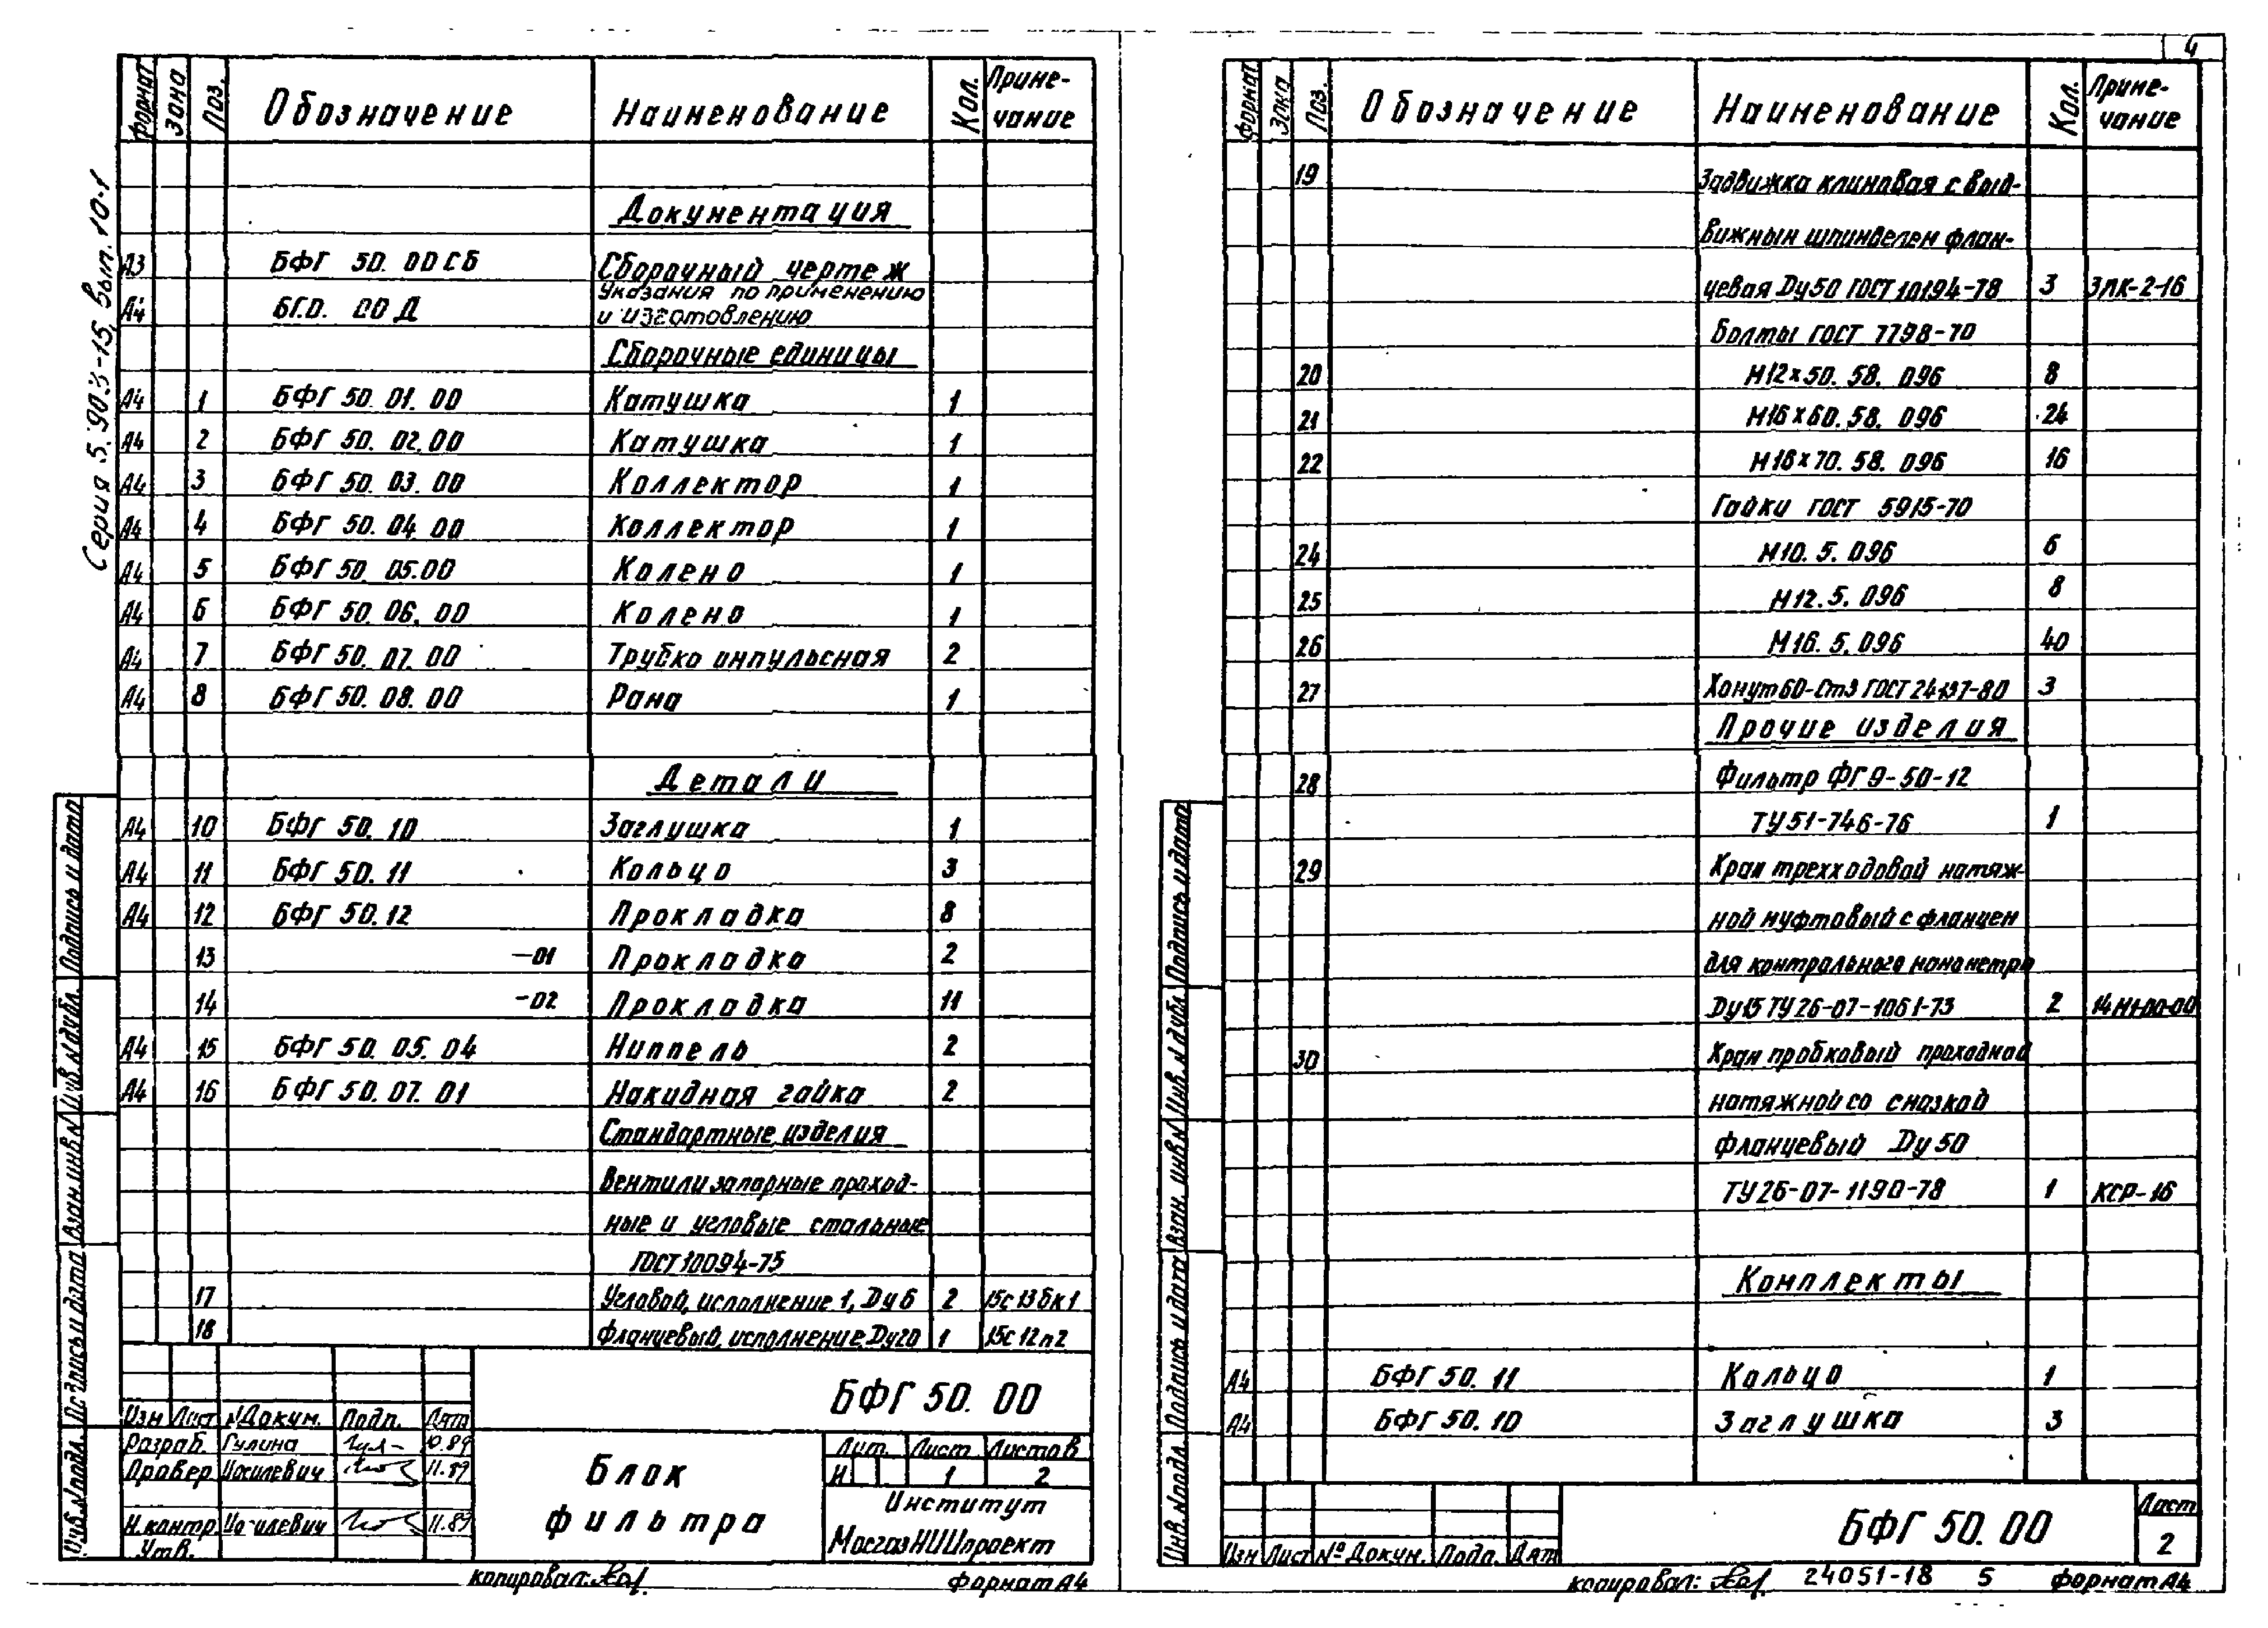 Серия 5.903-15, Вып. 10-1
Формат Зона Поз. Обозначение Наименование Кол. Приме-
чание
Документация
А3 БФГ 50.00СБ Сборочный чертеж
А4 БГ.0. 00 Д Указания по применению
и изготовлению
Сборочные единицы
А4 1 БФГ 50.01.00 Катушка 1
А4 2 БФГ 50.02.00 Катушка 1
А4 3 БФГ 50.03.00 Коллектор 1
А4 4 БФГ 50.04.00 Коллектор 1
А4 5 БФГ 50.05.00 Колено 1
А4 6 БФГ 50.06.00 Колено 1
А4 7 БФГ 50.07.00 Трубка импульсная 2
А4 8 БФГ 50.08.00 Рама 1
Детали
А4 10 БФГ 50.10 Заглушка 1
А4 11 БФГ 50.11 Кольцо 3
А4 12 БФГ 50.12 Прокладка 8
13 -01 Прокладка 2
14 -02 Прокладка 11
А4 15 БФГ 50.05.04 Ниппель 2
А4 16 БФГ 50.07.01 Накидная гайка 2
Стандартные изделия
Вентили запорные проход-
ные и угловые стальные
ГОСТ 10094-75
17 Угловой, исполнение 1, Ду 6 2 15с 13бк1
18 Фланцевый, исполнение, Ду20 1 15с 12п2
Подпись и дата
Инв.N дубл.
Взам.инв.N
Подпись и дата
Инв.N подл.
БФГ 50.00
Изм Лист N Докум. Подп. Дата
Разраб. Гулина 10.89
Провер Иосилевич 11.89
Н.контр Иосилевич 11.89
Утв.
Блок
фильтра
Лит. Лист Листов
И 1 2
Институт
МосгазНИИпроект
копировал: формат А4
4
Формат Зона Поз. Обозначение Наименование Кол. Приме-
чание
19 Задвижка клиновая с выд-
вижным шпинделем флан-
цевая Ду50 ГОСТ 10194-78 3 ЗЛК-2-16
Болты ГОСТ 7798-70
20 М12×50.58.096 8
21 М16×60.58.096 24
22 М16×70.58.096 16
Гайки ГОСТ 5915-70
24 М10.5.096 6
25 М12.5.096 8
26 М16.5.096 40
27 Хомут 60-Ст3 ГОСТ 24137-80 3
Прочие изделия
28 Фильтр ФГ9-50-12
ТУ51-746-76 1
29 Кран трехходовой натяж-
ной муфтовый с фланцем
для контрольного манометра
Ду15 ТУ 26-07-1061-73 2 14М1-00-00
30 Кран пробковый проходной
натяжной со смазкой
фланцевый Ду 50
ТУ26-07-1190-78 1 КСР-16
Комплекты
А4 БФГ 50.11 Кольцо 1
А4 БФГ 50.10 Заглушка 3
Подпись и дата
Инв.N дубл.
Взам. инв.N
Подпись и дата
Инв.N подл.
Изм Лист № Докум. Подп. Дата
БФГ 50.00
Лист
2
копировал: 24051-18 5 формат А4